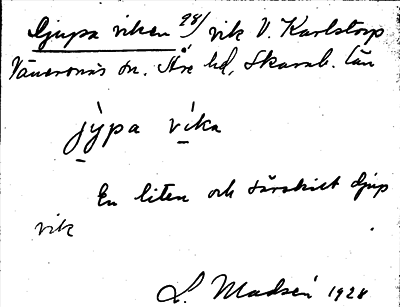 Djupa viken 98/ vik V. Karlstorp
Vänersnäs sn. Åse hd, Skarab. län
jỳpa vìka
En liten och särskilt djup
vik
L. Madsén 1928